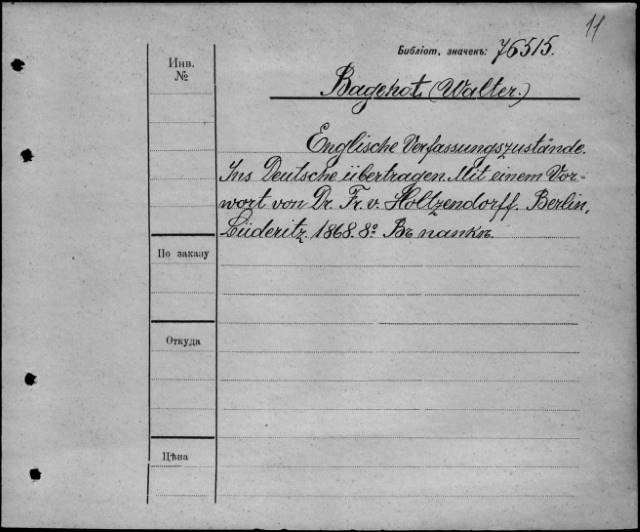 11
Библіот. значенъ: 76515.
Инв.
№
Bagehot (Walter.)
Englische Verfassungszustände.
Ins Deutsche übertragen. Mit einem Vor-
wort von Dr. Fr. v. Holtzendorff. Berlin,
Lüderitz. 1868. 8º. Въ папкѣ.
По заказу
Откуда
Цѣна